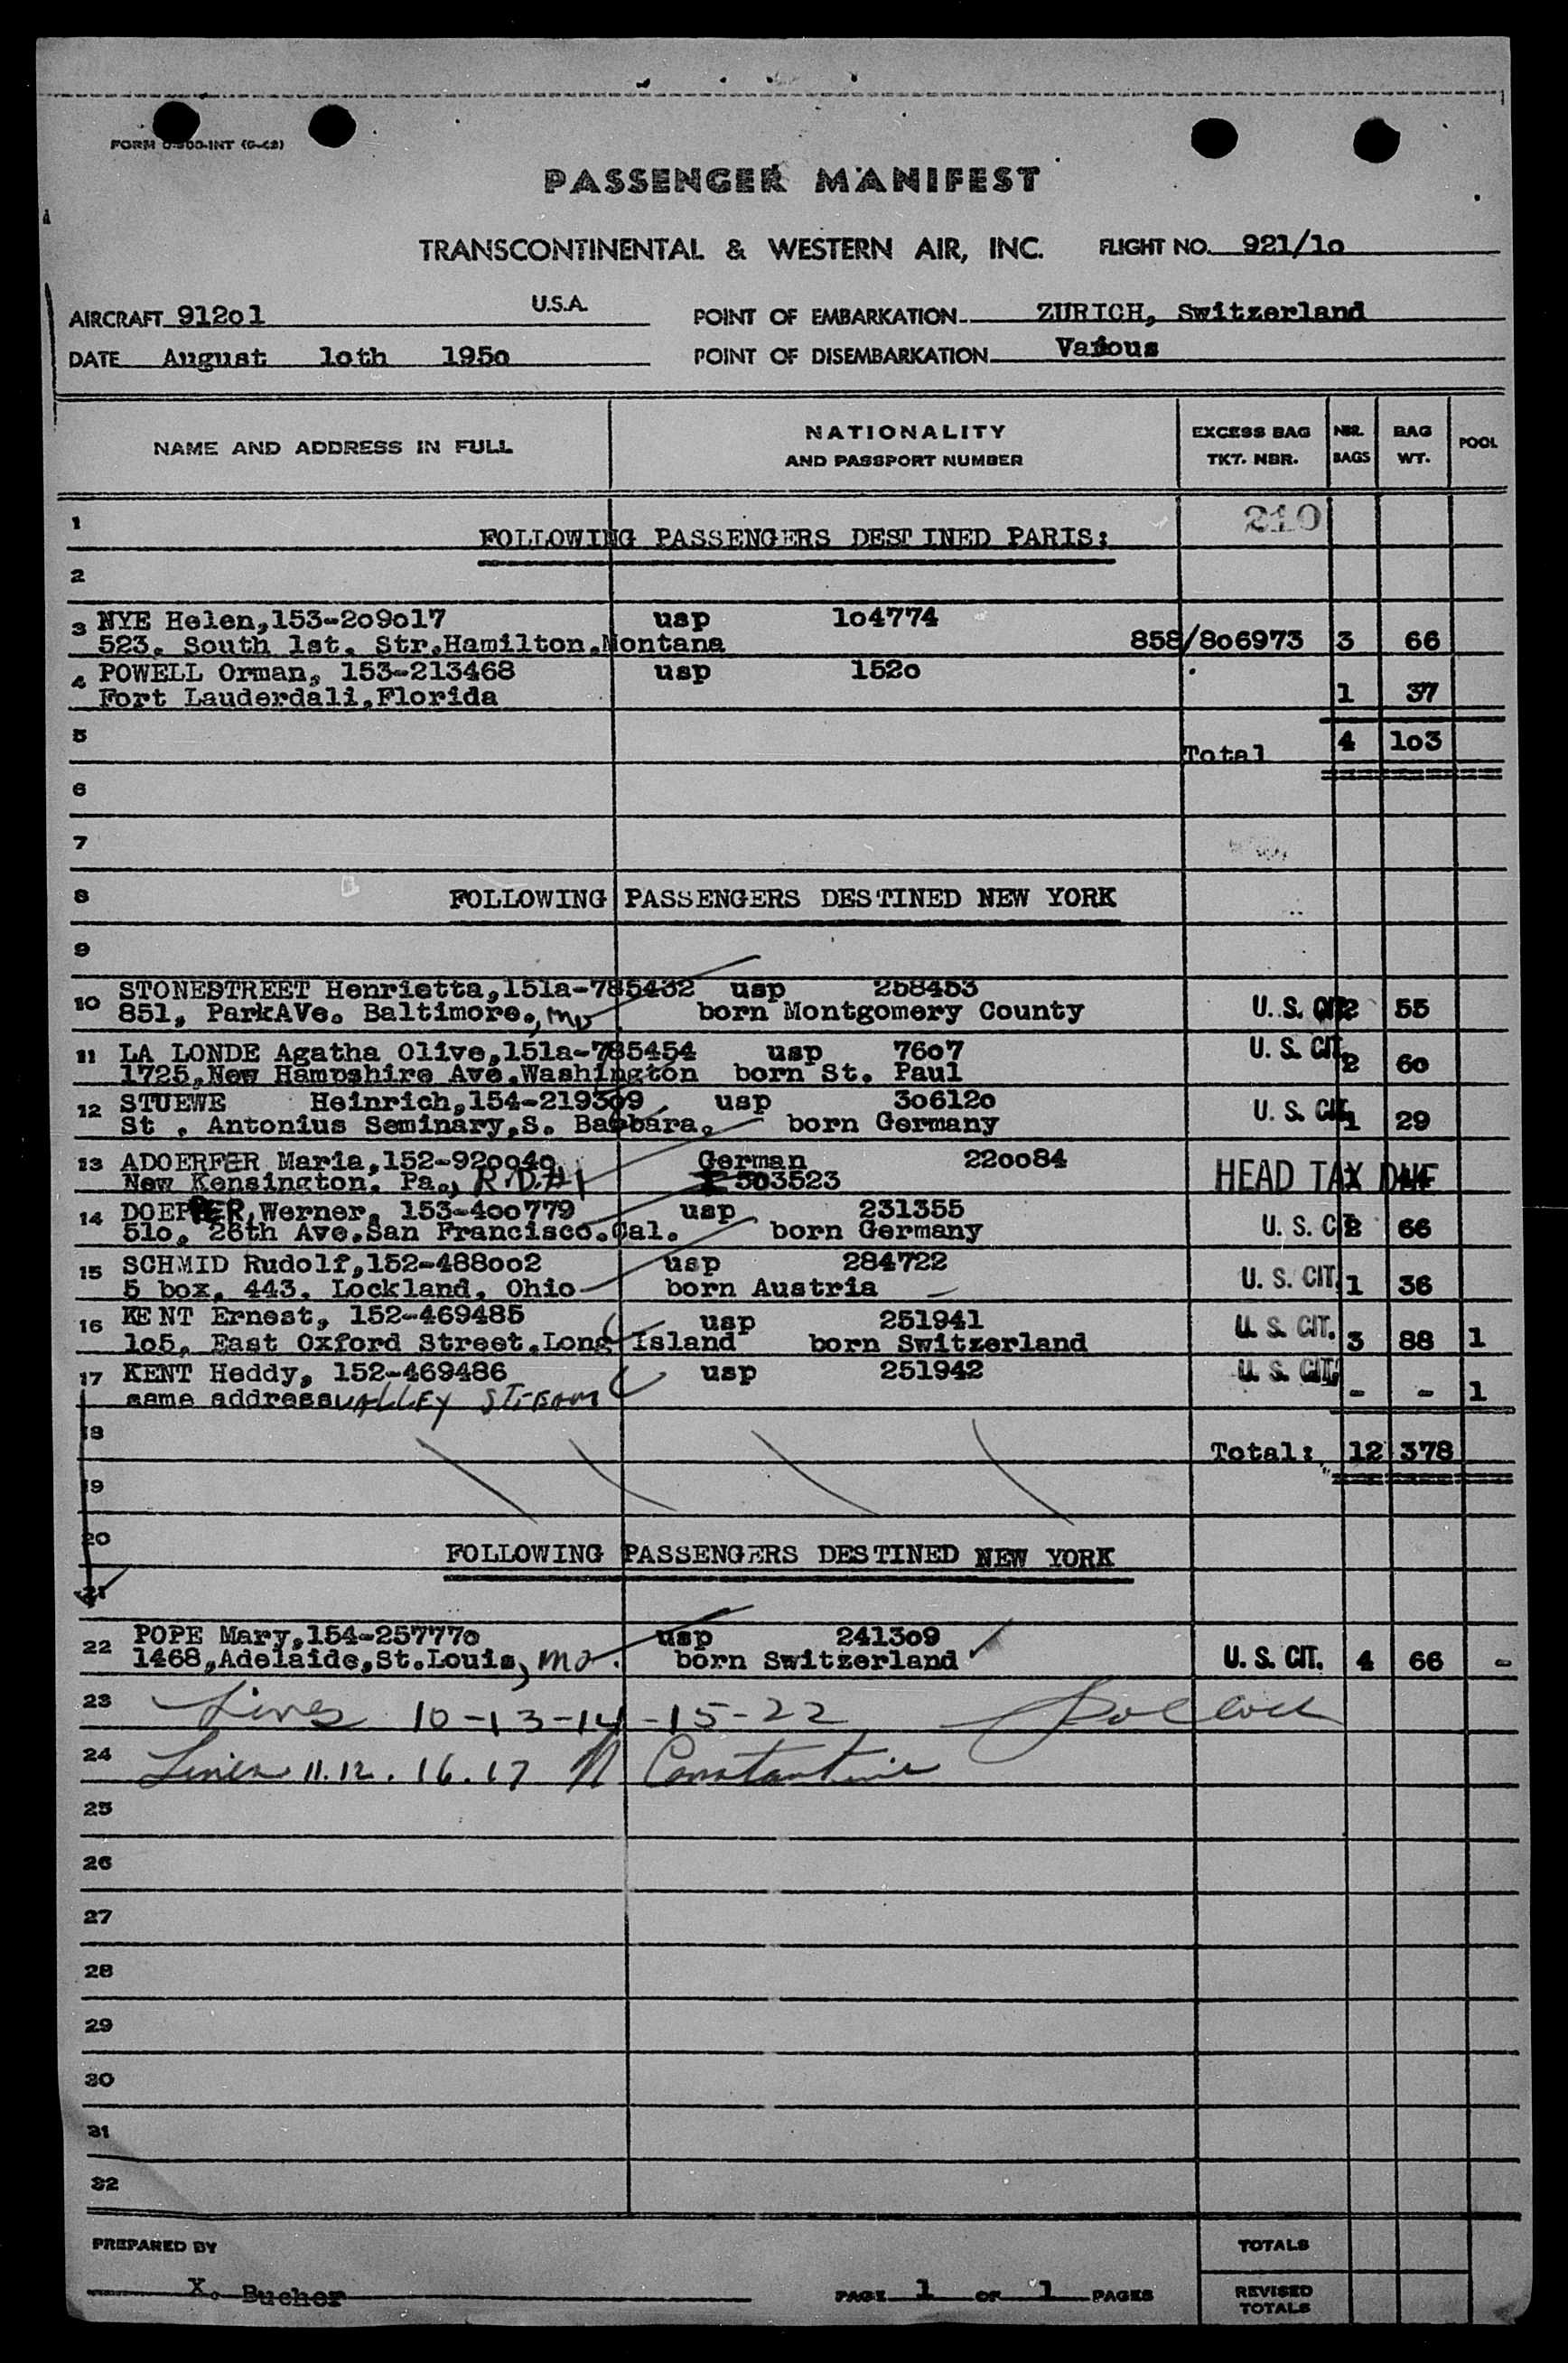 FORM 0-300-INT (6-48)
PASSENGER MANIFEST
TRANSCONTINENTAL & WESTERN AIR, INC. FLIGHT NO. 921/1o
AIRCRAFT 912o1 U.S.A. POINT OF EMBARKATION ZURICH, Switzerland
DATE August 1oth 195o POINT OF DISEMBARKATION Various
NAME AND ADDRESS IN FULL NATIONALITY AND PASSPORT NUMBER EXCESS BAG TKT. NBR. NBR. BAGS BAG WT. POOL
1 FOLLOWING PASSENGERS DESTINED PARIS: 210
2
3 NYE Helen,153-2o9o17 usp 1o4774
523. South 1st. Str.Hamilton.Montana 858/8o6973 3 66
4 POWELL Orman, 153-213468 usp 152o
Fort Lauderdali,Florida 1 37
5 Total 4 1o3
6
7
8 FOLLOWING PASSENGERS DESTINED NEW YORK
9
10 STONESTREET Henrietta,151a-785432 usp 258453
851, ParkAVe. Baltimore., MD born Montgomery County U. S. CIT. 2 55
11 LA LONDE Agatha Olive,151a-785454 usp 76o7
1725,New Hampshire Ave.Washington born St. Paul U. S. CIT. 2 6o
12 STUEWE Heinrich,154-2193o9 usp 3o612o
St . Antonius Seminary,S. Barbara. born Germany U. S. CIT. 1 29
13 ADOERFER Maria,152-92oo4o German 22oo84
New Kensington. Pa., R.D.#1 503523 HEAD TAX DUE 44
14 DOEPPER,Werner, 153-4oo779 usp 231355
51o. 26th Ave.San Francisco.Cal. born Germany U. S. CIT. 2 66
15 SCHMID Rudolf,152-488oo2 usp 284722
5 box. 443. Lockland, Ohio born Austria U. S. CIT. 1 36
16 KENT Ernest, 152-469485 usp 251941
1o5. East Oxford Street.Long Island born Switzerland U. S. CIT. 3 88 1
17 KENT Heddy, 152-469486 usp 251942
same address VALLEY STREAM U. S. CIT. - - 1
18 Total: 12 378
19
20 FOLLOWING PASSENGERS DESTINED NEW YORK
21
22 POPE Mary,154-25777o usp 2413o9
1468,Adelaide,St.Louis, MO. born Switzerland U. S. CIT. 4 66 -
23 Lines 10-13-14-15-22 Pollock
24 Lines 11.12.16.17 N Constantine
25
26
27
28
29
30
31
32
PREPARED BY TOTALS
X. Bucher PAGE 1 OF 1 PAGES REVISED TOTALS